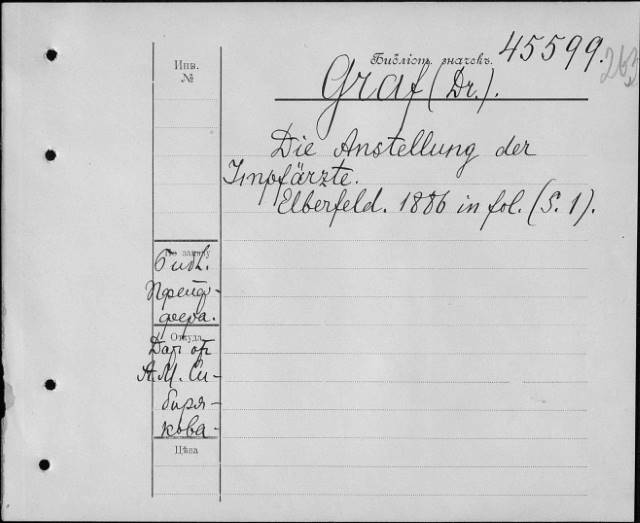 45599.
Инв.
№
Библіот. значокъ.
Graf (Dr.).
Die Anstellung der
Impfärzte.
Elberfeld. 1886 in fol. (S. 1).
Библ.
Прейф-
фера.
Откуда
Дар от
А.М. Си-
биря-
кова.
Цѣна